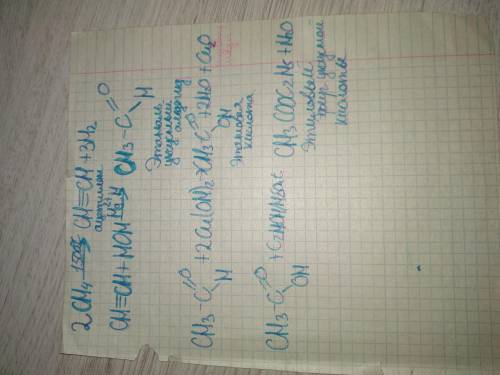 2CH₄ —1500°C→ CH≡CH + 3H₂
ацетилен
CH≡CH + HOH —Hg, H→ CH₃-C=O
H
Этаналь
уксусный
альдегид
CH₃-C=O + 2Cu(OH)₂→CH₃C=O + 2H₂O + Cu₂O
H
OH
Этановая
кислота
CH₃-C=O + C₂H₅OH CH₃COOC₂H₅ + H₂O
OH
Этиловый
эфир уксусной
кислоты